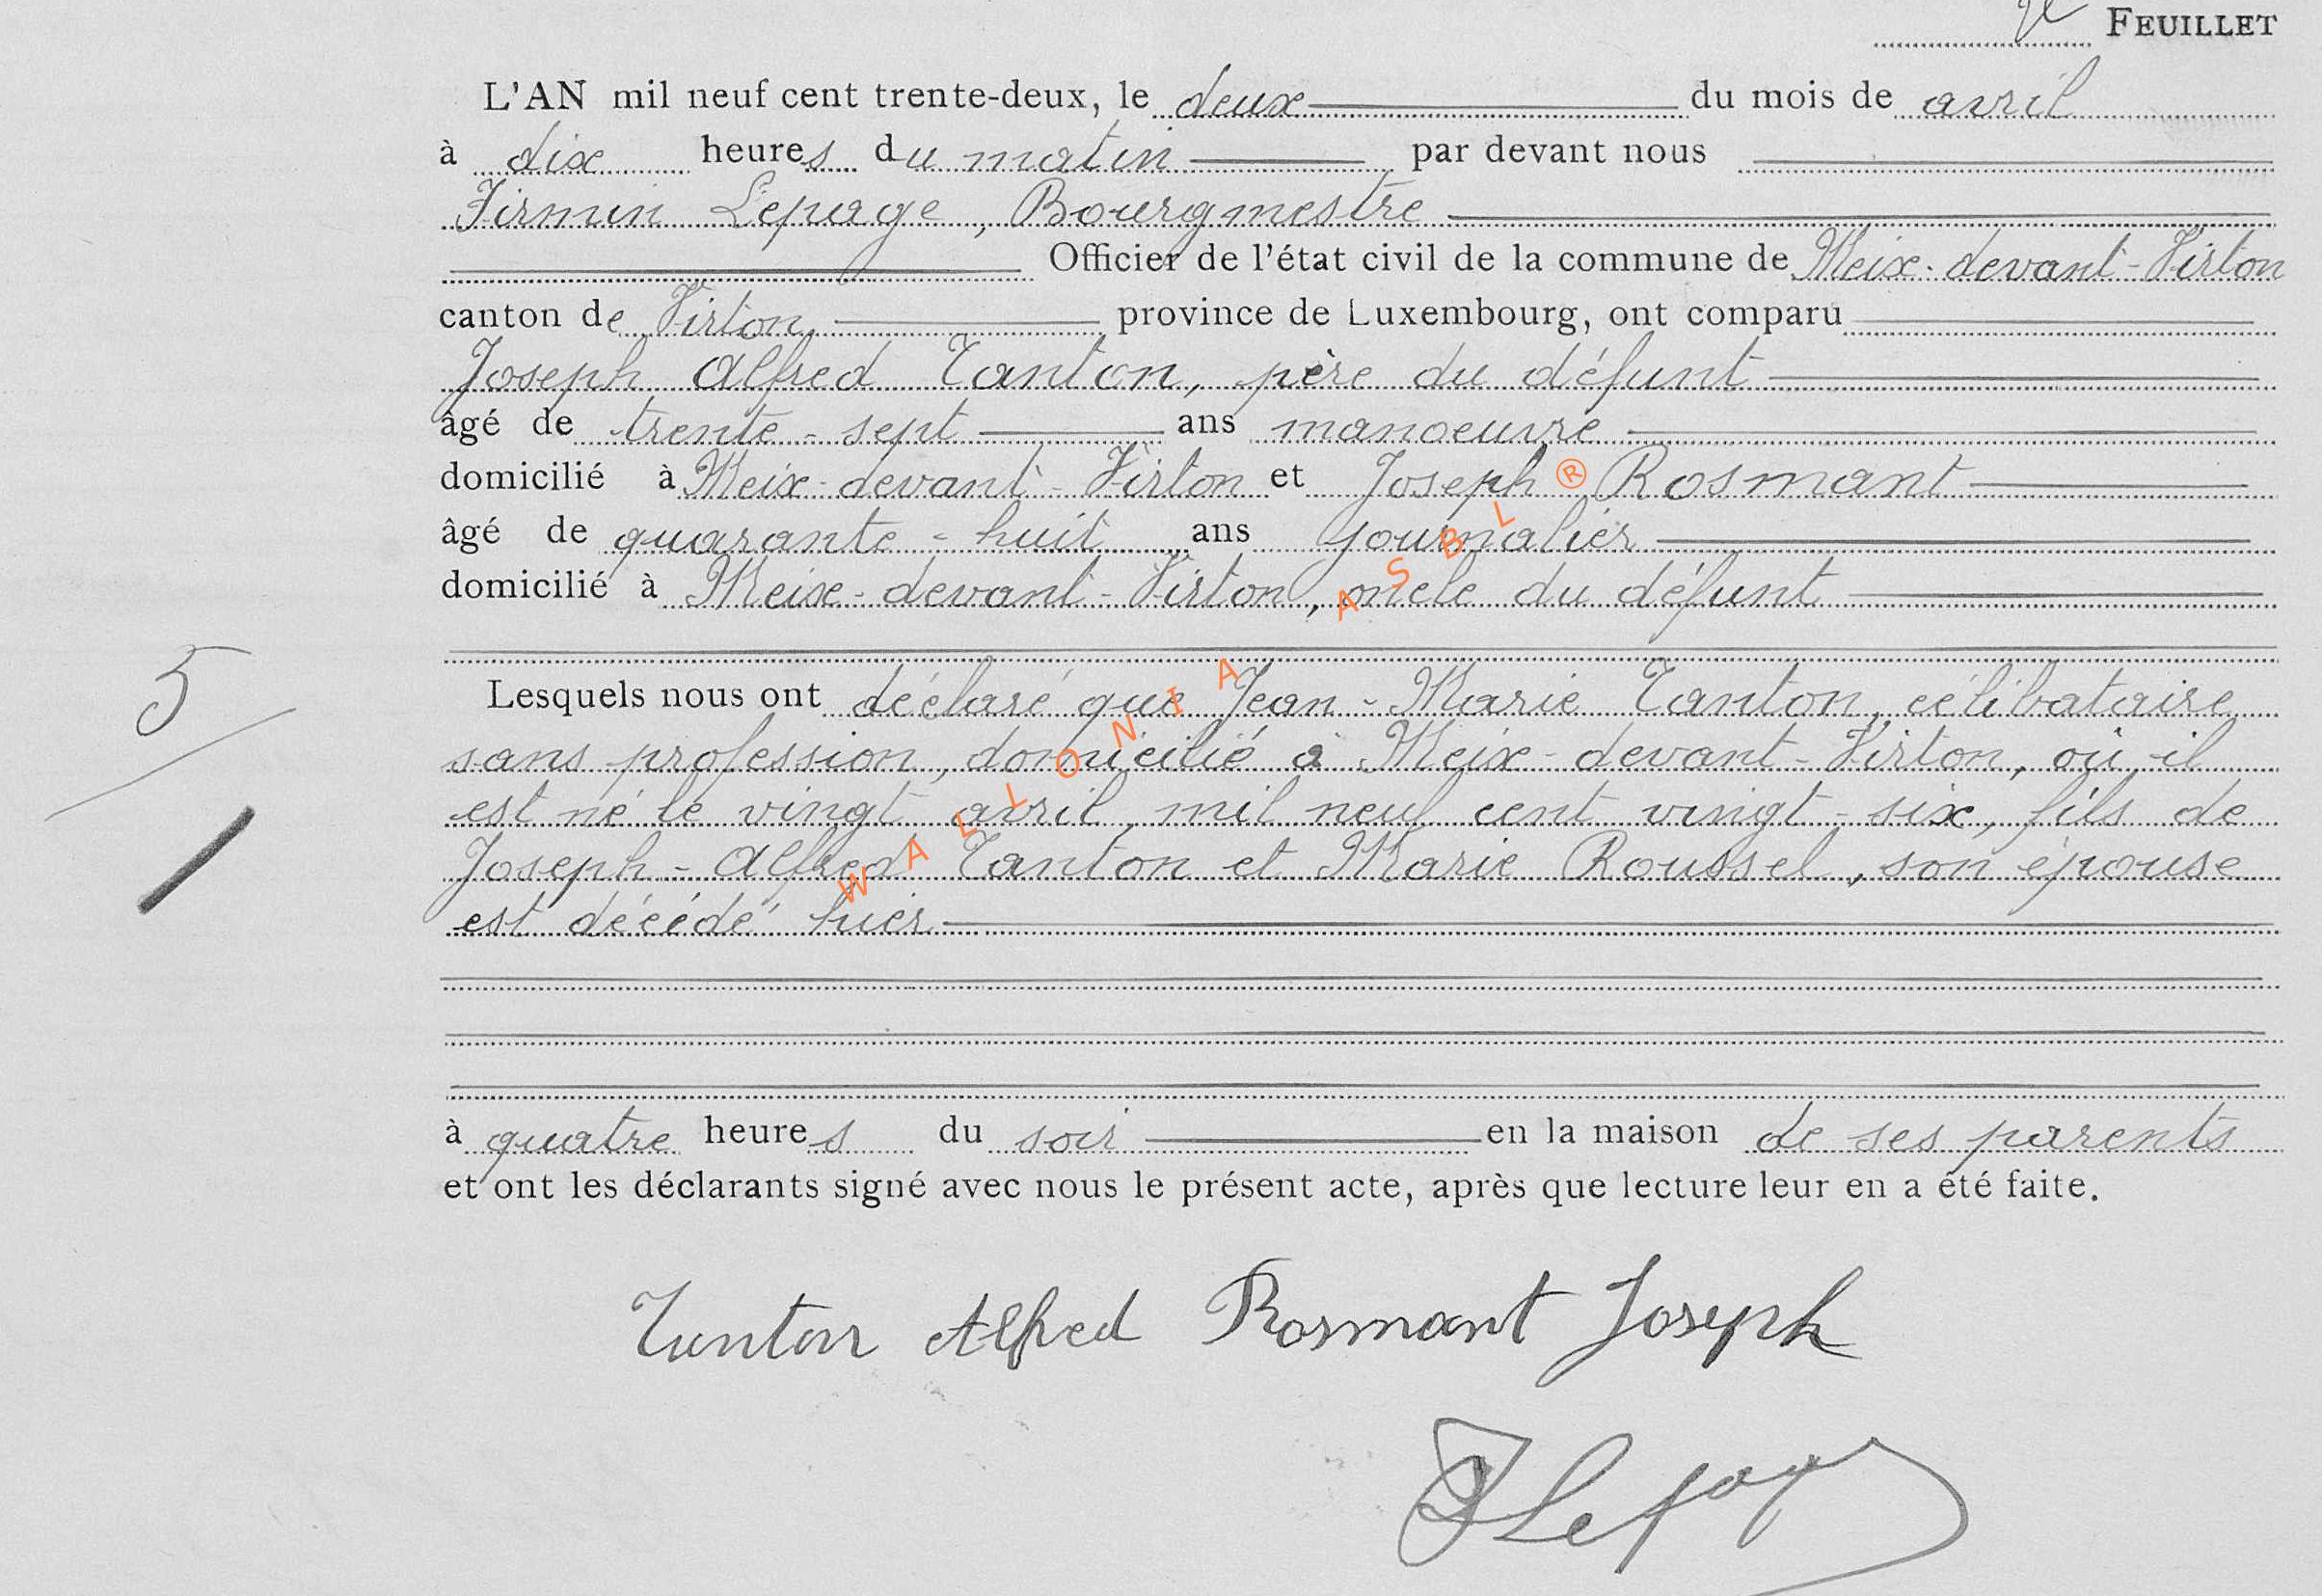 FEUILLET
L'AN mil neuf cent trente-deux, le deux du mois de avril
à dix heures du matin par devant nous
Firmin Lepage, Bourgmestre
Officier de l'état civil de la commune de Meix-devant-Virton
canton de Virton, province de Luxembourg, ont comparu
Joseph Alfred Tanton, père du défunt
âgé de trente-sept ans manoeuvre
domicilié à Meix-devant-Virton et Joseph Rosmant
âgé de quarante-huit ans journalier
domicilié à Meix-devant-Virton, oncle du défunt
5
Lesquels nous ont déclaré que Jean-Marie Tanton, célibataire
sans profession, domicilié à Meix-devant-Virton, où il
est né le vingt avril mil neuf cent vingt-six, fils de
Joseph-Alfred Tanton et Marie Roussel, son épouse
est décédé hier
à quatre heures du soir en la maison de ses parents
et ont les déclarants signé avec nous le présent acte, après que lecture leur en a été faite.
Tanton Alfred Rosmant Joseph
FLepage
WALLONIA ASBL ®